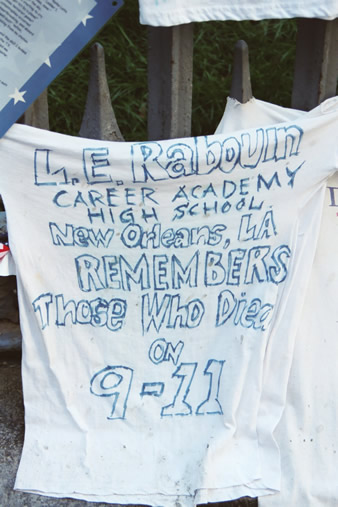 L.E. Rabouin
CAREER ACADEMY
HIGH SCHOOL
New Orleans, LA
REMEMBERS
Those Who Died
ON
9-11